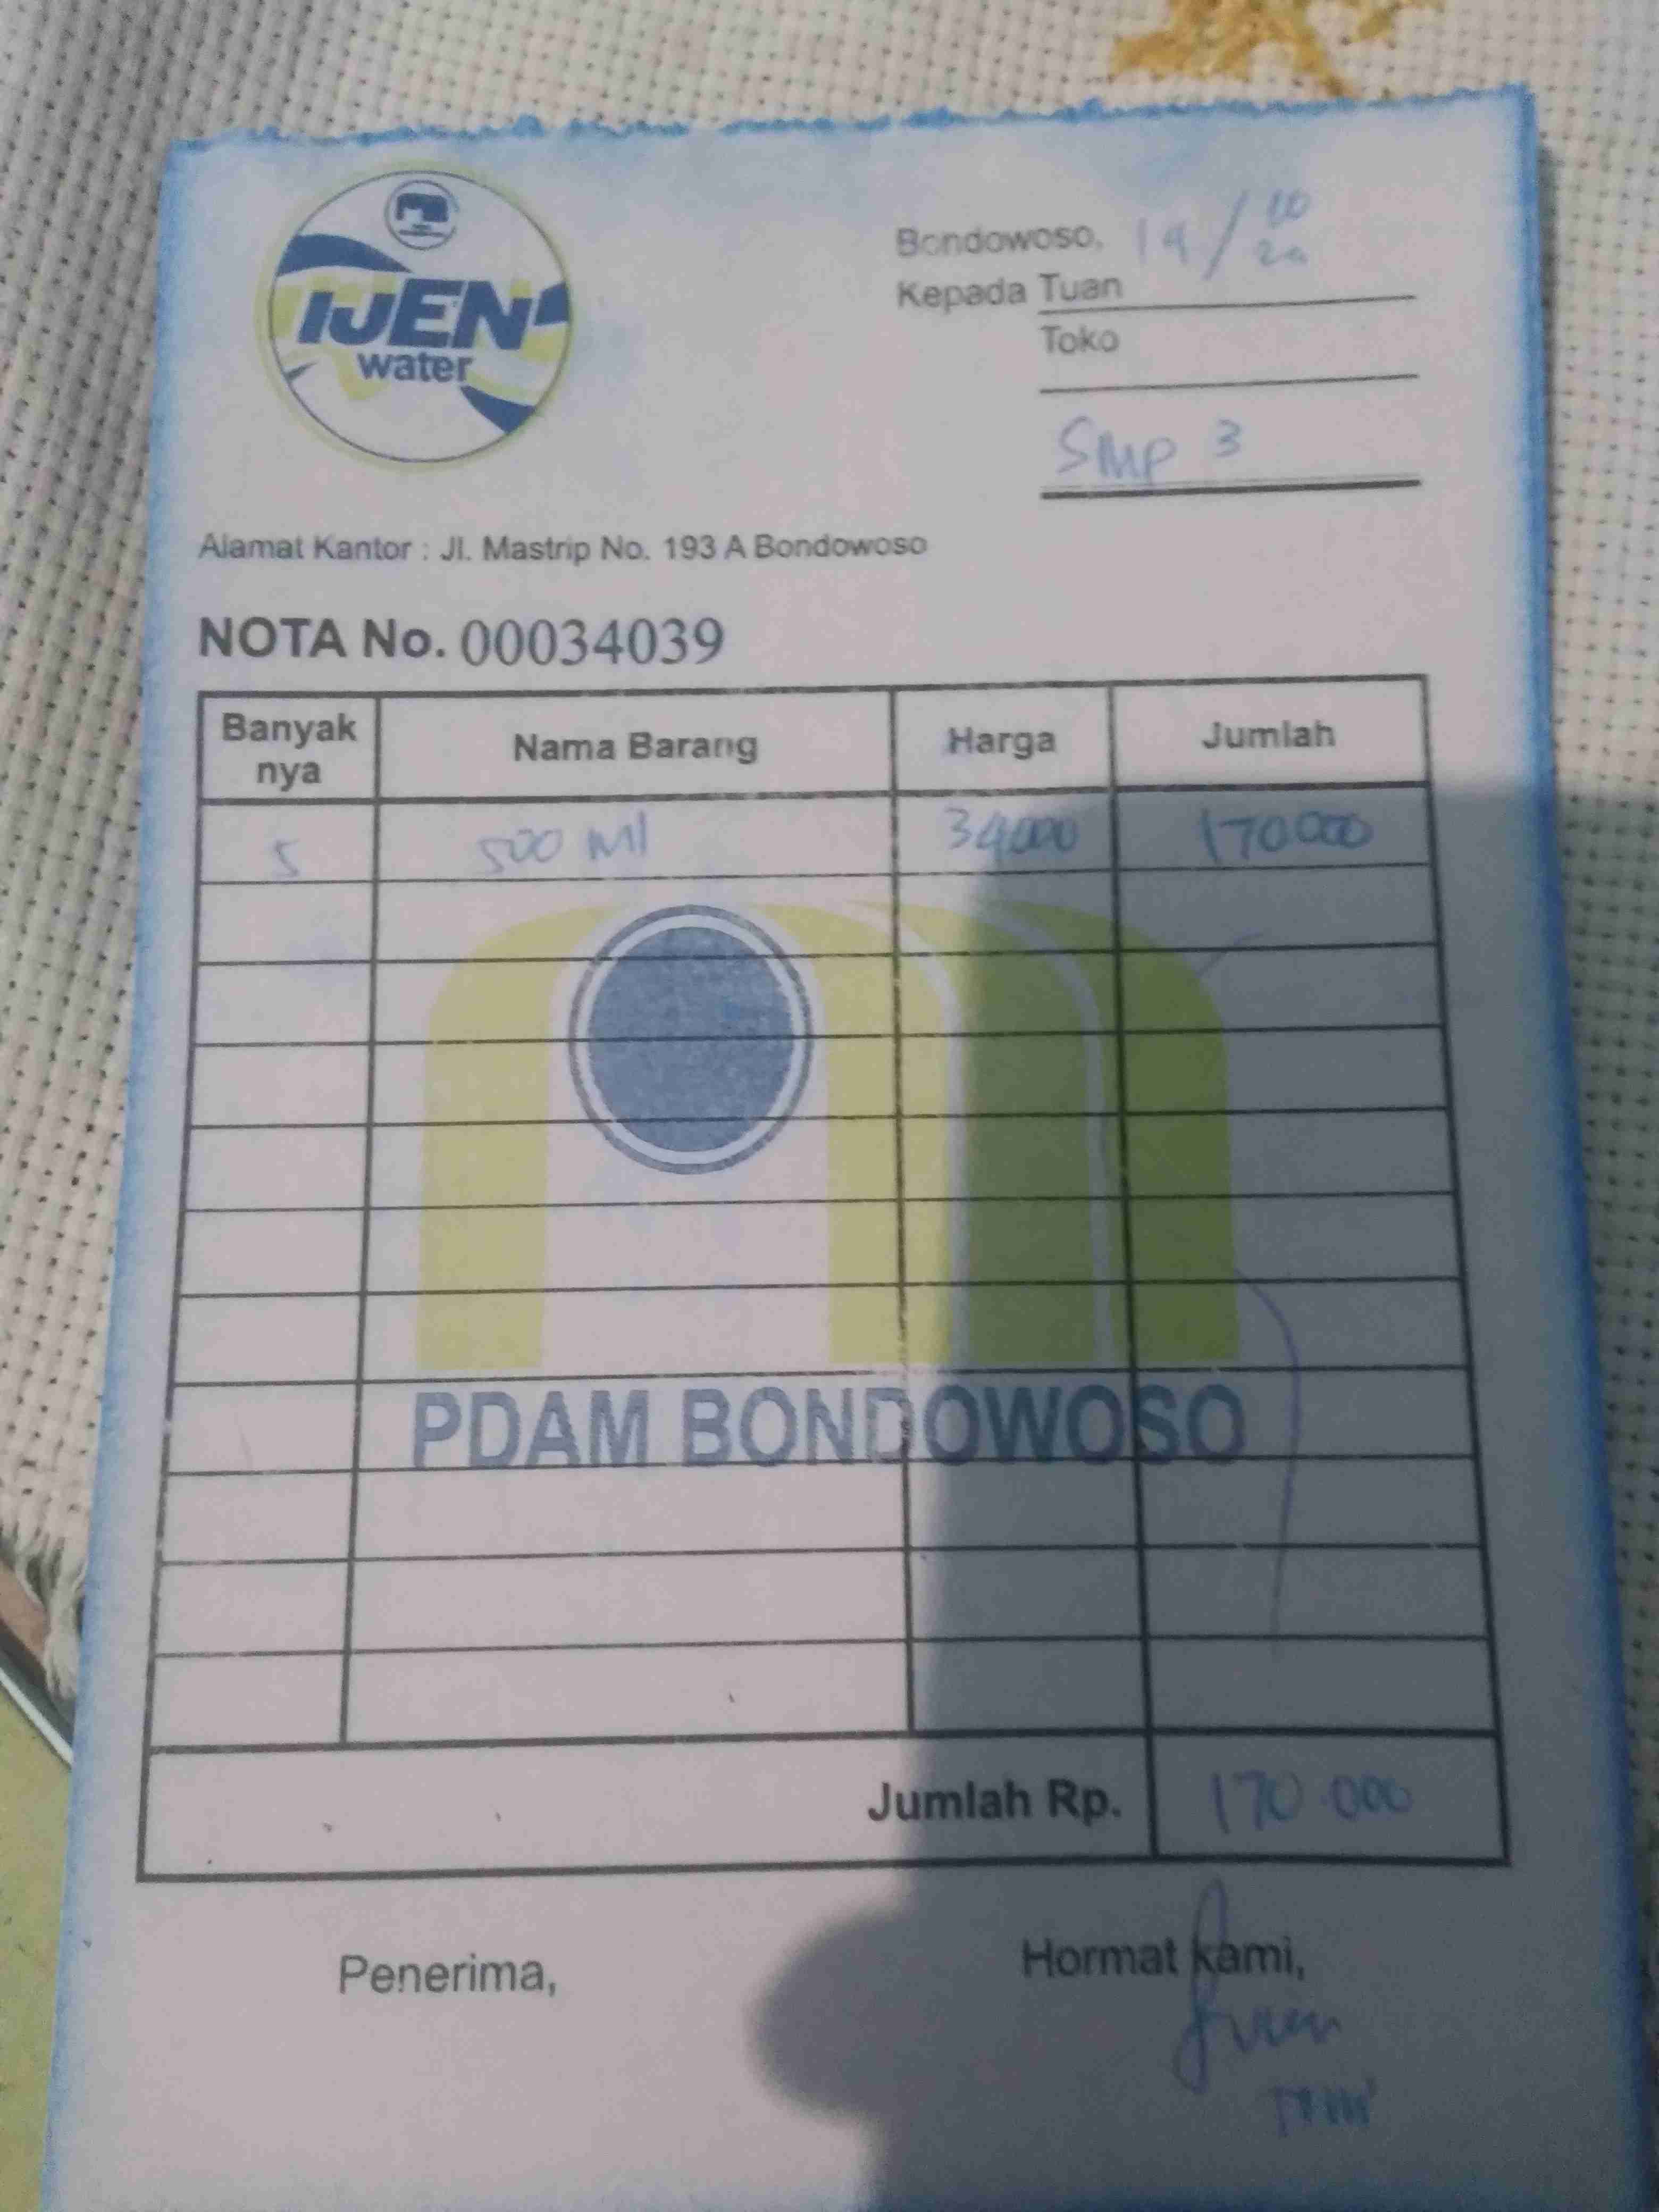 IJEN
water
Bondowoso, 19/10
Kepada Tuan
Toko
SMP 3
Alamat Kantor : Jl. Mastrip No. 193 A Bondowoso
NOTA No. 00034039
Banyak nya Nama Barang Harga Jumlah
5 500 Ml 34000 170000
PDAM BONDOWOSO
Jumlah Rp. 170.000
Penerima, Hormat kami,